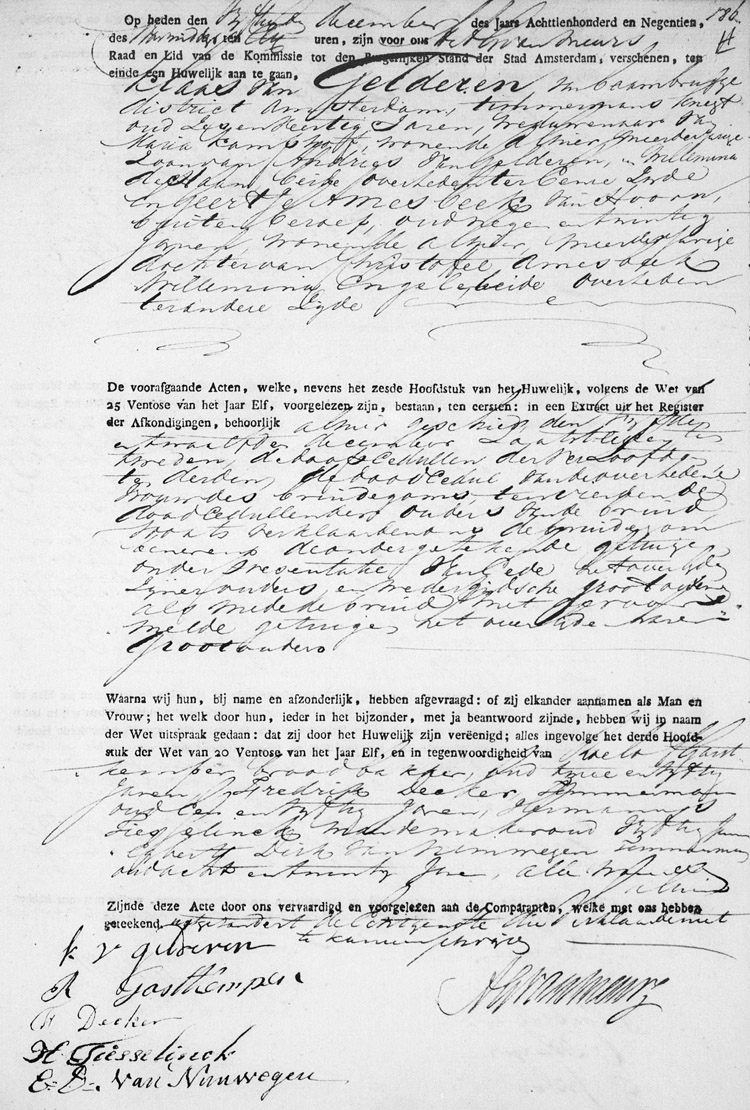 Op heden den Vyftiende december des Jaars Achttienhonderd en Negentien,
des Voormiddags ten Elf uren, zijn voor ons van Meurs
Raad en Lid van de Kommissie tot den Burgerlijken Stand der Stad Amsterdam, verschenen, ten
einde een Huwelijk aan te gaan,
Klaas van Gelderen, van baambrugge
district amsterdam, timmermans knegt
oud Jaren, weduwenaar van
Maria kamphoff, wonende alhier, meerderjarige
Zoon van Andries van Gelderen, en Willemina
de Haan beide overleden ter Eenre Zyde
En Geertje Amesbeek van Hoorn,
buiten beroep, oud negen en twintig
Jaren, wonende alhier, meerderjarige
dochter van Christoffel Amesbeek
Willemina Engel beide overleden
ter andere Zyde
De voorafgaande Acten, welke, nevens het zesde Hoofdstuk van het Huwelijk, volgens de Wet van
25 Ventose van het Jaar Elf, voorgelezen zijn, bestaan, ten eersten: in een Extract uit het Register
der Afkondigingen, behoorlijk alhier geschied den
en twaalfden december Laatstleden ten
tweeden, de doop Cedullen der Verloofden
ten derden, de dood Cedul van de overledene
vrouw des bruidegoms, ten vierden de
dood Cedullen der ouders van de bruid
zo als verklaarde ons de bruidegom
de ondergetekende getuige
onder presentatie van Eede het overlyden
zyner ouders en wederzydsche grootouders
als mede de bruid met
melde getuige het overlyden harer
grootouders
Waarna wij hun, bij name en afzonderlijk, hebben afgevraagd: of zij elkander aannamen als Man en
Vrouw; het welk door hun, ieder in het bijzonder, met ja beantwoord zijnde, hebben wij in naam
der Wet uitspraak gedaan: dat zij door het Huwelijk zijn verëenigd; alles ingevolge het derde Hoofd-
stuk der Wet van 20 Ventose van het Jaar Elf, en in tegenwoordigheid van
kemper broodbakker, oud twee en vyftig
Jaren, Fredrik Decker, Timmerman
oud Een en vyftig Jaren, Hermannus
Tiesselinck mandemaker oud vyftig Jaren
Egbert Dirk van Nimwegen Timmerman
oud acht en twintig Jaren, alle
alhier
Zijnde deze Acte door ons vervaardigd en voorgelezen aan de Comparanten, welke met ons hebben
geteekend, uitgezondert de Echtgenote die verklaarde niet
te kunnen schryven
k v gelderen
R Oosthemper
F Decker
H. Tiesselinck
E. D. van Nimwegen